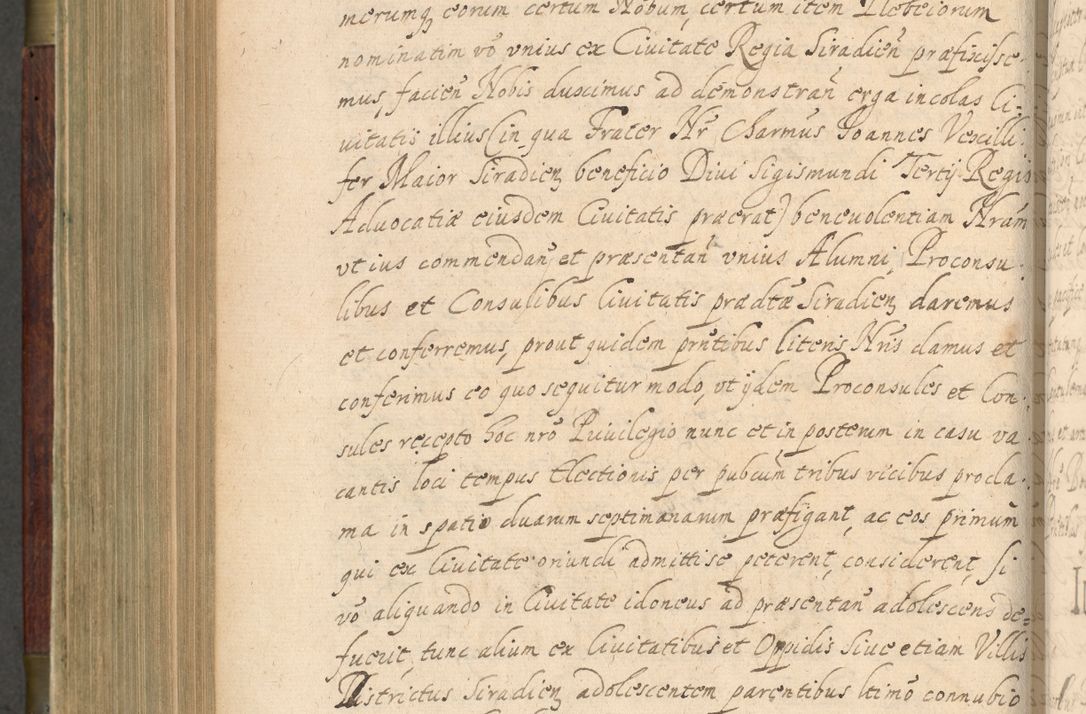 merumq₃ eorum certum Nobum, certum item Plebeiorum
nominatim vō vnius ex Ciuitate Regia Siradień præfixisse
mus, facień Nobis duximus ad demonstrań erga incolas Ci-
uitatis illius (in qua Frater Nr̄ Charmūs Ioannes Vexilli
fer Maior Siradień beneficio Diui Sigismundi Tertij Regis
Aduocatiæ eiusdem Ciuitatis præerat) beneuolentiam Nrām
vt ius commendań et præsentań vnius Alumni, Proconsu
libus et Consulibus Ciuitatis prædtæ Siradień daremus
et conferremus, prout quidem prntibus literis Nrīs damus et
conferimus eo quo sequitur modo, vt ijdem Proconsules et Con
sules recepto hoc nrō Priuilegio nunc et in posterum in casu va
cantis loci tempus Electionis per pubcum tribus vicibus procla
ma in spatio duarum septimanarum præfigant, ac eos primum
qui ex Ciuitate oriundi admitti se peterent, considerent, si
vō aliquando in Ciuitate idoneus ad præsentań adolescens de-
fuerit, tunc alium ex Ciuitatibus et Oppidis Siue etiam Villis
Districtus Siradień adolescentem parentibus ltimō connubio